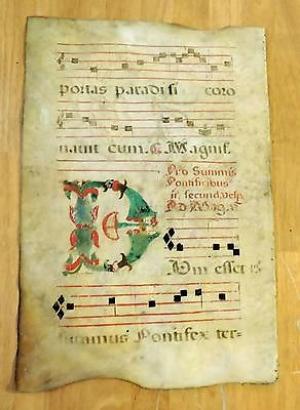 portas paradisi coro
nauit eum. Magnif.
Pro Summis
Pontificibus
in secund. vesp.
Ad Mag. A
Dum esset
Pontifex ter=